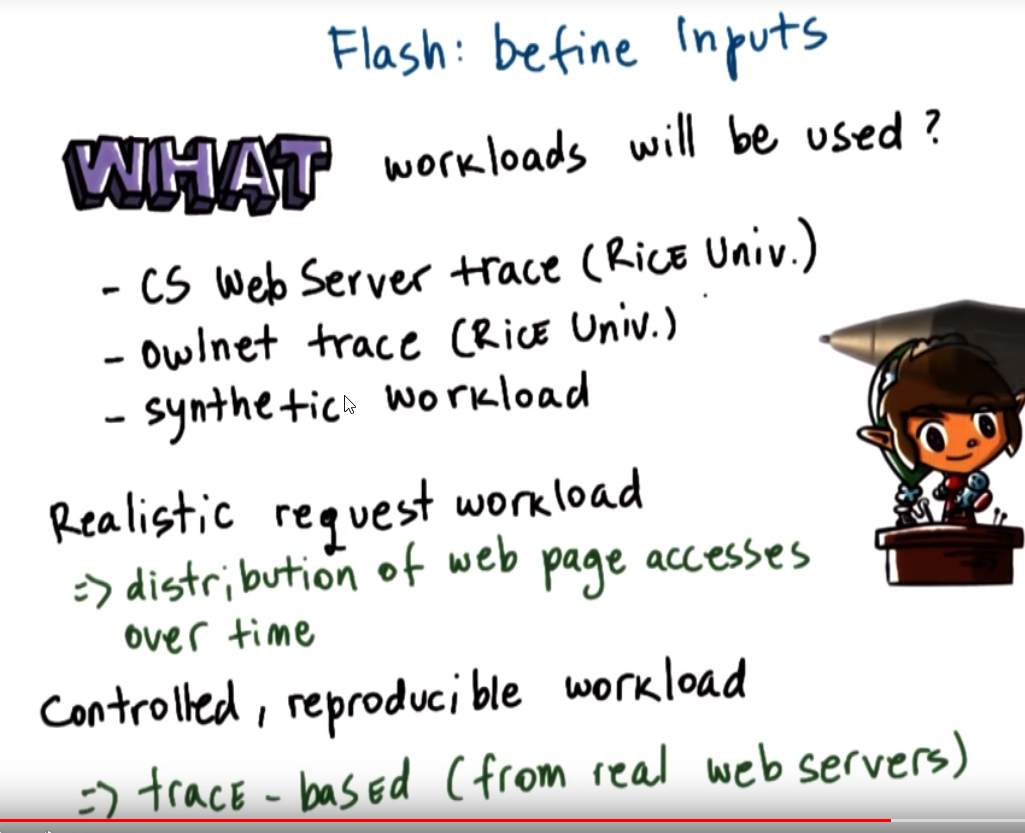 Flash: befine Inputs
WHAT workloads will be used?
- CS Web Server trace (RICE Univ.)
- owlnet trace (RICE Univ.)
- synthetic workload
Realistic request workload
=> distribution of web page accesses
over time
Controlled, reproducible workload
=> trace-based (from real web servers)